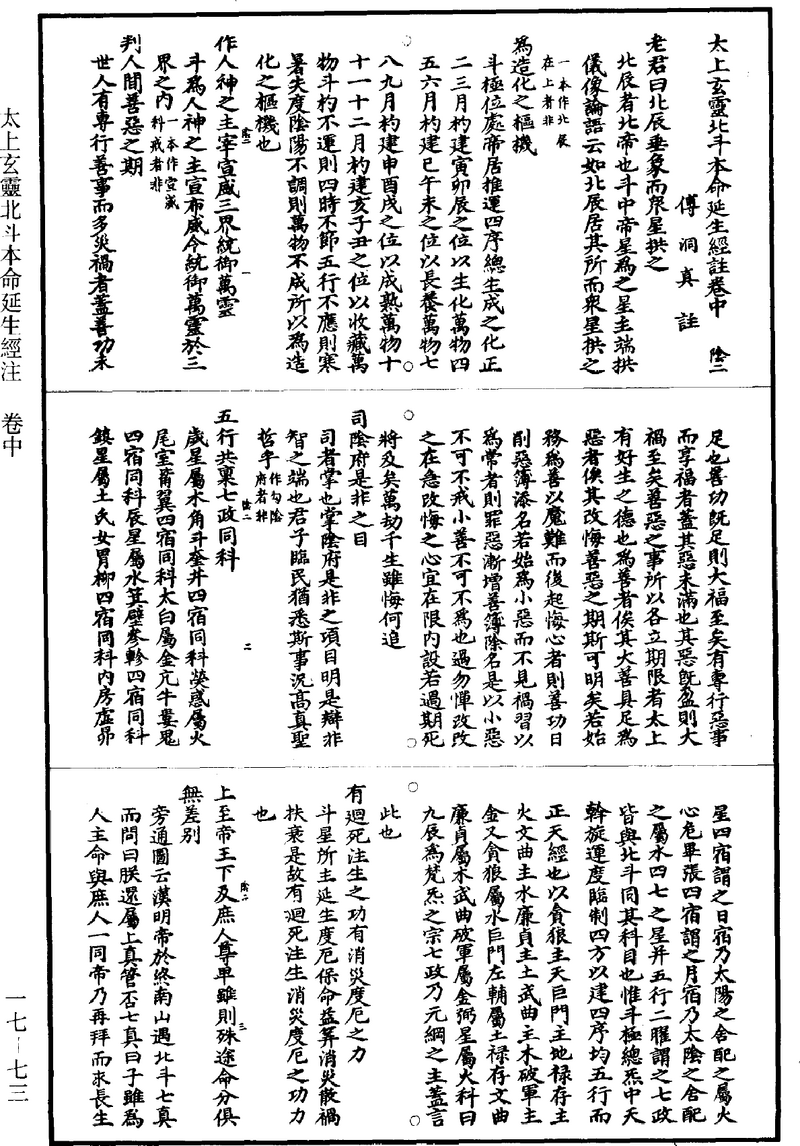 太上玄靈北斗本命延生經註卷中 陰二
傅洞真註
老君曰北辰垂象而衆星拱之
北辰者北帝也斗中帝星爲之星主端拱
儀像論語云如北辰居其所而衆星拱之
一本作北辰
在上者非
爲造化之樞機
斗極位處帝居推運四序總生成之化正
二三月杓建寅卯辰之位以生化萬物四
五六月杓建巳午未之位以長養萬物七
八九月杓建申酉戌之位以成熟萬物十
十一十二月杓建亥子丑之位以收藏萬
物斗杓不運則四時不節五行不應則寒
暑失度陰陽不調則萬物不成所以爲造
化之樞機也
陰二 一
作人神之主宰宣威三界統御萬靈
斗爲人神之主宣布威令統御萬靈於三
界之內一本作宣威科戒者非
判人間善惡之期
世人有專行善事而多災禍者蓋善功未
足也善功既足則大福至矣有專行惡事
而享福者蓋其惡未滿也其惡既盈則大
禍至矣善惡之事所以各立期限者太上
有好生之德也爲善者俟其大善具足爲
惡者俟其改悔善惡之期斯可明矣若始
務爲善以魔難而復起悔心者則善功日
削惡簿添名若始爲小惡而不見禍習以
爲常者則罪惡漸增善簿除名是以小惡
不可不戒小善不可不爲也過勿憚改改
之在急改悔之心宜在限內設若過期死
將及矣萬劫千生雖悔何追
司陰府是非之目
司者掌也掌陰府是非之項目明是辯非
智之端也君子臨民猶悉斯事況高真聖
哲乎作勾陰府者非
陰二 二
五行共稟七政同科
歲星屬木角斗奎井四宿同科熒惑屬火
尾室觜翼四宿同科太白屬金亢牛婁鬼
四宿同科辰星屬水箕壁參軫四宿同科
鎮星屬土氐女胃柳四宿同科內房虛昴
星四宿謂之日宿乃太陽之舍配之屬火
心危畢張四宿謂之月宿乃太陰之舍配
之屬水四七之星并五行二曜謂之七政
皆與北斗同其科目也惟斗極總炁中天
斡旋運度臨制四方以建四序均五行而
正天經也以貪狼主天巨門主地祿存主
火文曲主水廉貞主土武曲主木破軍主
金又貪狼屬水巨門左輔屬土祿存文曲
廉貞屬木武曲破軍屬金弼星屬火科曰
九辰爲梵炁之宗七政乃元綱之主蓋言
此也
有迴死注生之功有消災度厄之力
斗星所主延生度厄保命益筭消災散禍
扶衰是故有迴死注生消災度厄之功力
也
陰二 三
上至帝王下及庶人尊卑雖則殊途命分俱
無差別
旁通圖云漢明帝於終南山遇北斗七真
而問曰朕還屬上真管否七真曰子雖爲
人主命與庶人一同帝乃再拜而求長生
太上玄靈北斗本命延生經注 卷中
一七－七三